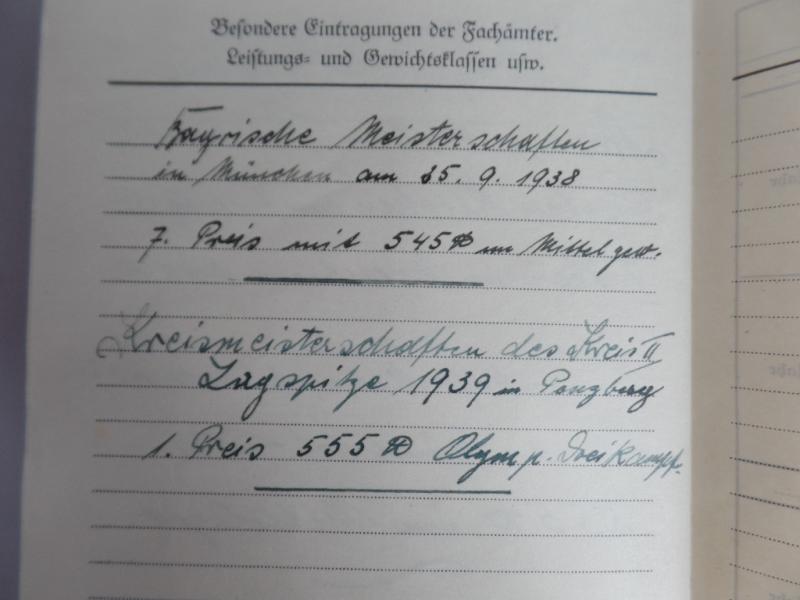 Besondere Eintragungen der Fachämter.
Leistungs- und Gewichtsklassen usw.
Bayrische Meisterschaften
in München am 25. 9. 1938
7. Preis mit 545 ℔ im Mittelgew.
Kreismeisterschaften des Kreis II
Zugspitze 1939 in
1. Preis 555 ℔ Olymp. Dreikampf.